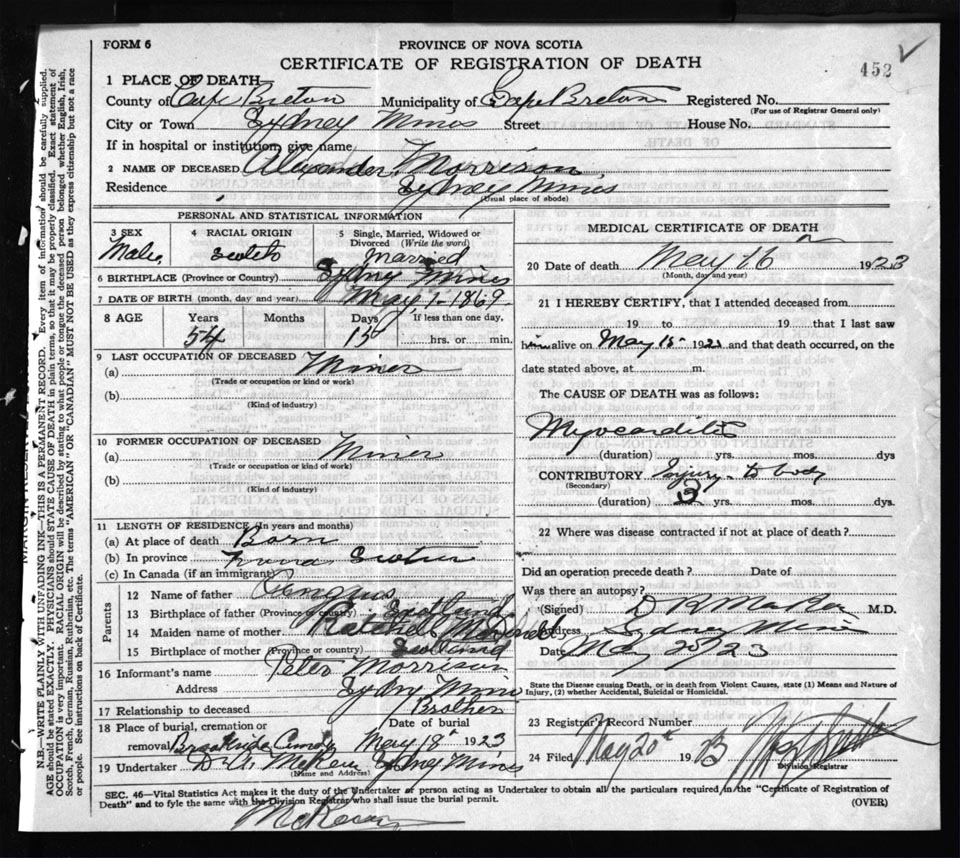 FORM 6
PROVINCE OF NOVA SCOTIA
CERTIFICATE OF REGISTRATION OF DEATH
452
1 PLACE OF DEATH—
County of Cape Breton Municipality of Cape Breton Registered No.
(For use of Registrar General only)
City or Town Sydney Mines Street House No.
If in hospital or institution, give name
2 NAME OF DECEASED Alexander Morrison
Residence Sydney Mines
(Usual place of abode)
PERSONAL AND STATISTICAL INFORMATION
3 SEX Male
4 RACIAL ORIGIN Scotch
5 Single, Married, Widowed or Divorced (Write the word) Married
6 BIRTHPLACE (Province or Country) Sydney Mines
7 DATE OF BIRTH (month, day and year) May 1- 1869
8 AGE Years 54 Months Days 15 If less than one day, hrs. or min.
9 LAST OCCUPATION OF DECEASED
(a) Miner
(Trade or occupation or kind of work)
(b)
(Kind of industry)
10 FORMER OCCUPATION OF DECEASED
(a) Miner
(Trade or occupation or kind of work)
(b)
(Kind of industry)
11 LENGTH OF RESIDENCE (In years and months)
(a) At place of death Born
(b) In province Nova Scotia
(c) In Canada (if an immigrant)
Parents
12 Name of father Angus
13 Birthplace of father (Province or country) Scotland
14 Maiden name of mother
15 Birthplace of mother (Province or country) Scotland
16 Informant's name Peter Morrison
Address Sydney Mines
17 Relationship to deceased Brother
18 Place of burial, cremation or removal Brookside Date of burial May 18" 1923
19 Undertaker Sydney Mines
(Name and Address)
MEDICAL CERTIFICATE OF DEATH
20 Date of death May 16 1923
(Month, day and year)
21 I HEREBY CERTIFY, that I attended deceased from
19 to 19 that I last saw
him alive on May 15 1923 and that death occurred, on the
date stated above, at m.
The CAUSE OF DEATH was as follows:
Myocarditis
(duration) yrs. mos. dys
CONTRIBUTORY Injury to body
(Secondary)
(duration) 3 yrs. mos. dys.
22 Where was disease contracted if not at place of death?
Did an operation precede death? Date of
Was there an autopsy?
(Signed) M.D.
Address Sydney Mines
Date May 23
State the Disease causing Death, or in death from Violent Causes, state (1) Means and Nature of
Injury, (2) whether Accidental, Suicidal or Homicidal.
23 Registrar's Record Number
24 Filed May 20th 1923
Division Registrar
SEC. 46—Vital Statistics Act makes it the duty of the Undertaker or person acting as Undertaker to obtain all the particulars required in the "Certificate of Registration of
Death" and to fyle the same with the Division Registrar who shall issue the burial permit. (OVER)
N.B.—WRITE PLAINLY WITH UNFADING INK—THIS IS A PERMANENT RECORD. Every item of information should be carefully supplied.
AGE should be stated EXACTLY. PHYSICIANS should STATE CAUSE OF DEATH in plain terms, so that it may be properly classified. Exact statement of
OCCUPATION is very important. RACIAL ORIGIN will be described by stating to what people or tongue the deceased person belonged whether English, Irish,
Scotch, French, German, Russian, Ruthenian, etc. The terms "AMERICAN" OR "CANADIAN" MUST NOT BE USED as they express citizenship but not a race
or people. See instructions on back of Certificate.